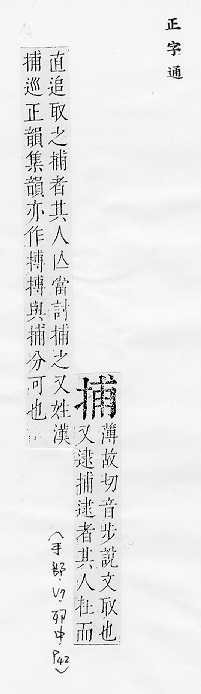 正字通
捕
薄故切音步說文取也
又逮捕逮者其人在而
直追取之捕者其人亾當討捕之又姓漢
捕巡正韻集韻亦作搏搏與捕分可也